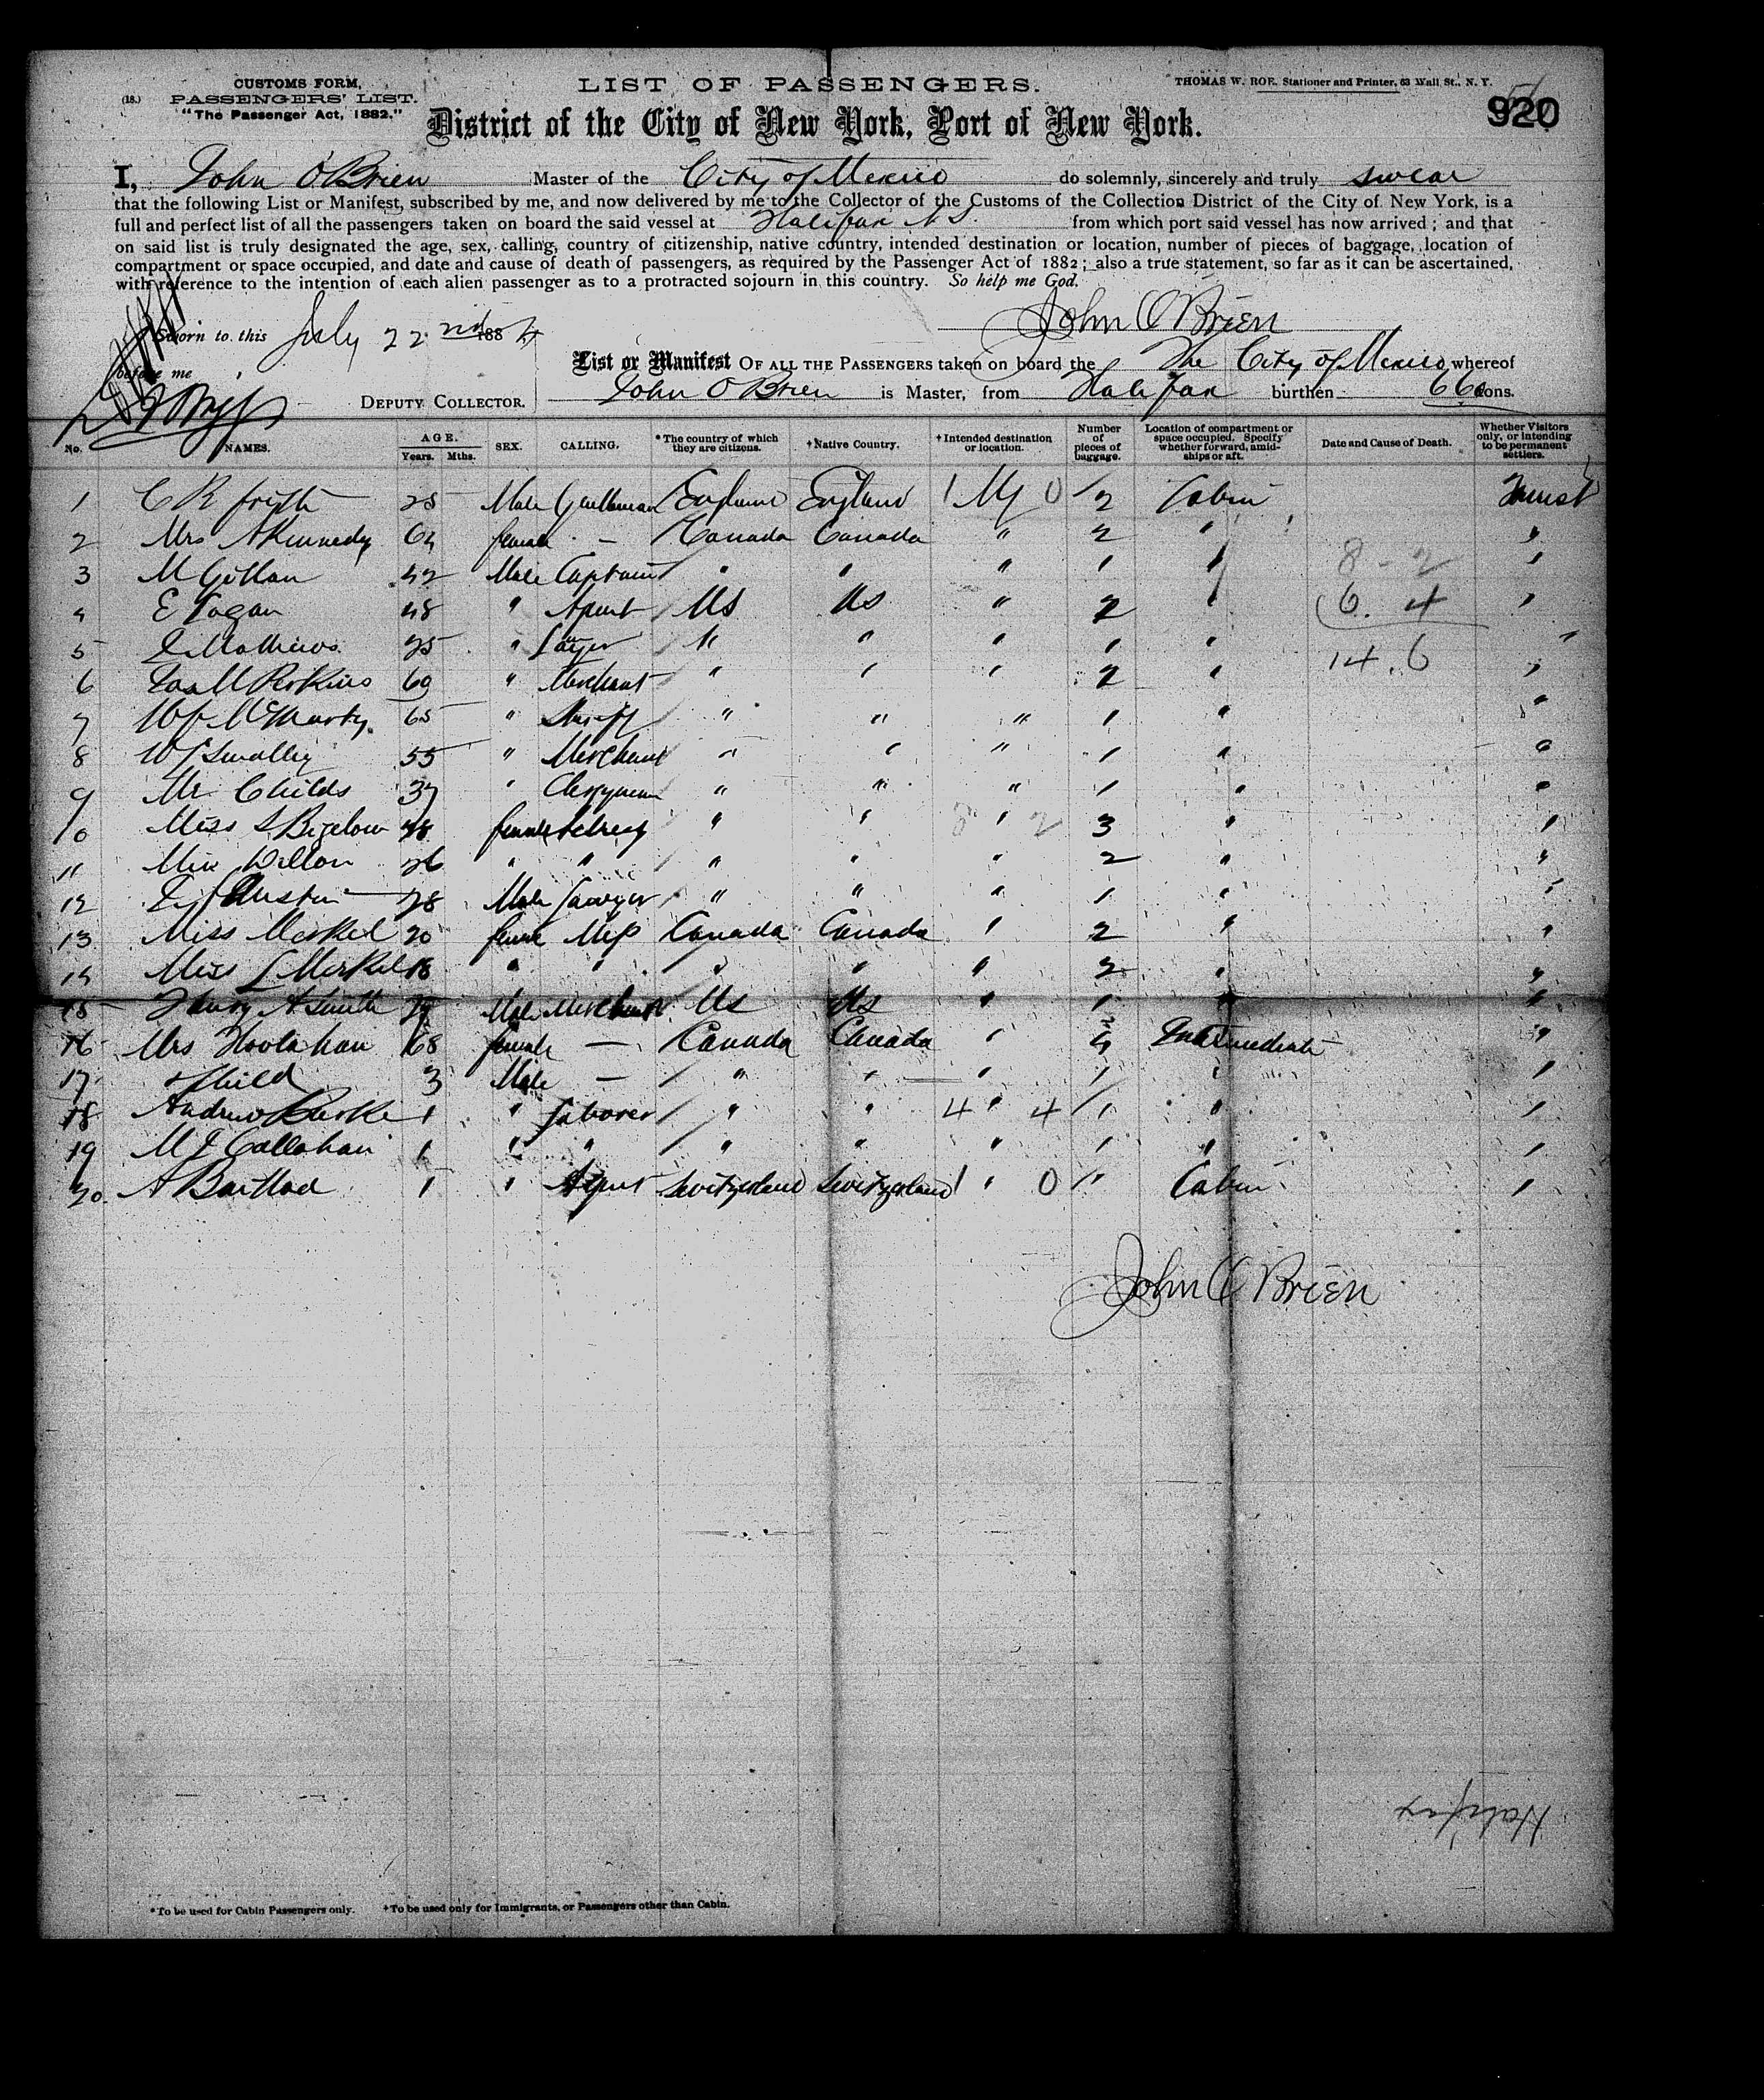 CUSTOMS FORM,
(18.) PASSENGERS' LIST.
"The Passenger Act, 1882."
LIST OF PASSENGERS.
THOMAS W. ROE, Stationer and Printer, 53 Wall St., N. Y.
920
District of the City of New York, Port of New York.
I, John O'Brien Master of the City of Mexico do solemnly, sincerely and truly swear
that the following List or Manifest, subscribed by me, and now delivered by me to the Collector of the Customs of the Collection District of the City of New York, is a
full and perfect list of all the passengers taken on board the said vessel at Halifax N S. from which port said vessel has now arrived; and that
on said list is truly designated the age, sex, calling, country of citizenship, native country, intended destination or location, number of pieces of baggage, location of
compartment or space occupied, and date and cause of death of passengers, as required by the Passenger Act of 1882; also a true statement, so far as it can be ascertained,
with reference to the intention of each alien passenger as to a protracted sojourn in this country. So help me God.
John O'Brien
Sworn to this July 22nd 1884
before me
DEPUTY COLLECTOR.
List or Manifest OF ALL THE PASSENGERS taken on board the The City of Mexico whereof
John O'Brien is Master, from Halifax burthen tons.
No. NAMES. AGE. Years. Mths. SEX. CALLING. *The country of which they are citizens. †Native Country. †Intended destination or location. Number of pieces of baggage. Location of compartment or space occupied. Specify whether forward, amidships or aft. Date and Cause of Death. Whether Visitors only, or intending to be permanent settlers.
1 C R Frith 25 Male Gentleman England England 1 NY 0 2 Cabin Tourist
2 Mrs A Kennedy 64 female — Canada Canada " 2 " "
3 M 42 Male Captain " " " 1 " 8 - 2 "
4 E Logan 48 " Agent US US " 2 " 6. 4 "
5 Mathews 25 " " " " 1 " 14.6 "
6 Jas M Perkins 69 " Merchant " " " 2 " "
7 Wm McMurty 65 " " " " 1 " "
8 W Smalley 55 " Merchant " " " 1 " "
9 Mr Childs 37 " Clergyman " " " 1 " "
10 Miss S Bigelow female " " 2 " 2 3 " "
11 Miss Dillon 26 " " " " " 2 " "
12 Austin 28 Male Lawyer " " " 1 " "
13 Miss Merkel 20 female Canada Canada " 2 " "
14 Miss L Merkel 18 " " " " " 2 " "
15 Henry A Smith Male Merchant US US " 1 " "
16 Mrs Hoolahan 68 female — Canada Canada " 4 Intermediate "
17 & Child 3 Male — " " " 1 " "
18 Andrew Burke 1 " Laborer " " 4 " 4 1 " "
19 M J Callahan 1 " " " " " 1 " "
20 A 1 " Agent Switzerland Switzerland 1 " 0 1 Cabin "
John O'Brien
Halifax
*To be used for Cabin Passengers only. †To be used only for Immigrants, or Passengers other than Cabin.